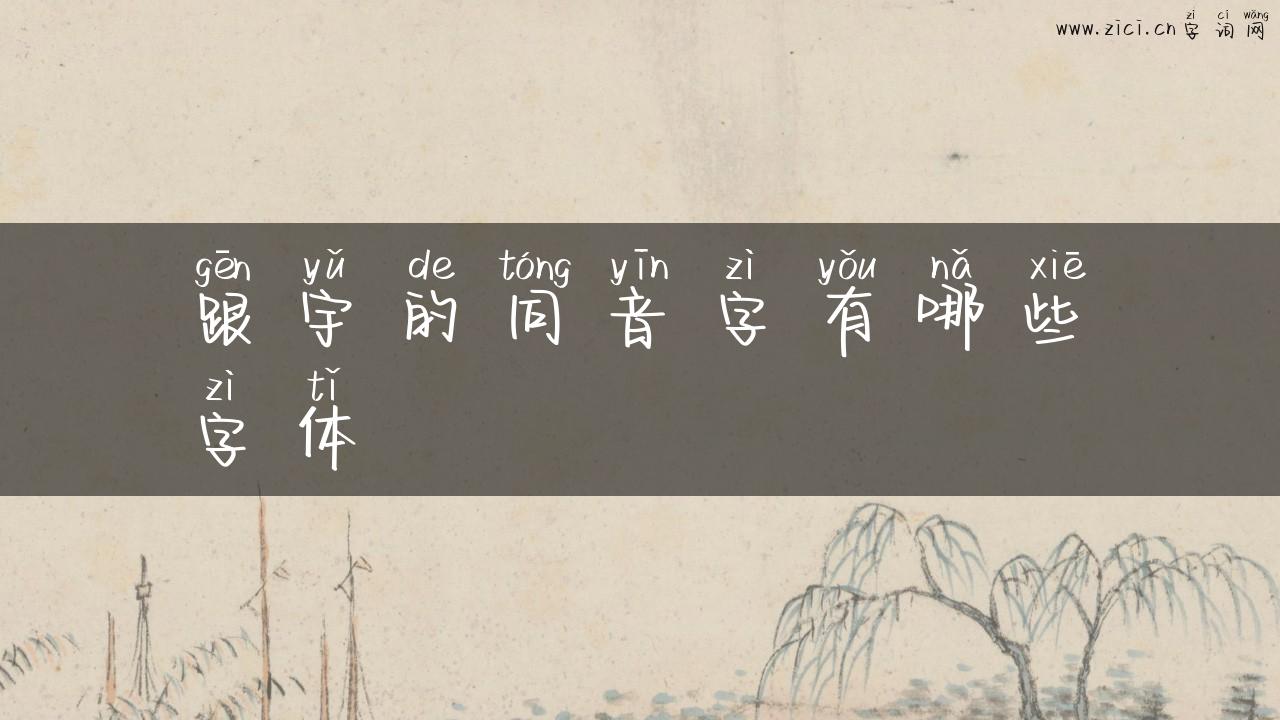 zì cí wǎng
www.zici.cn 字 词 网
gēn yǔ de tóng yīn zì yǒu nǎ xiē
跟 宇 的 同 音 字 有 哪 些
zì tǐ
字 体